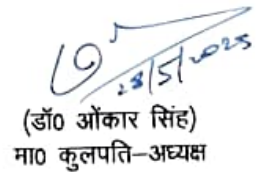 28/5/2025
(डॉ0 ओंकार सिंह)
मा0 कुलपति–अध्यक्ष